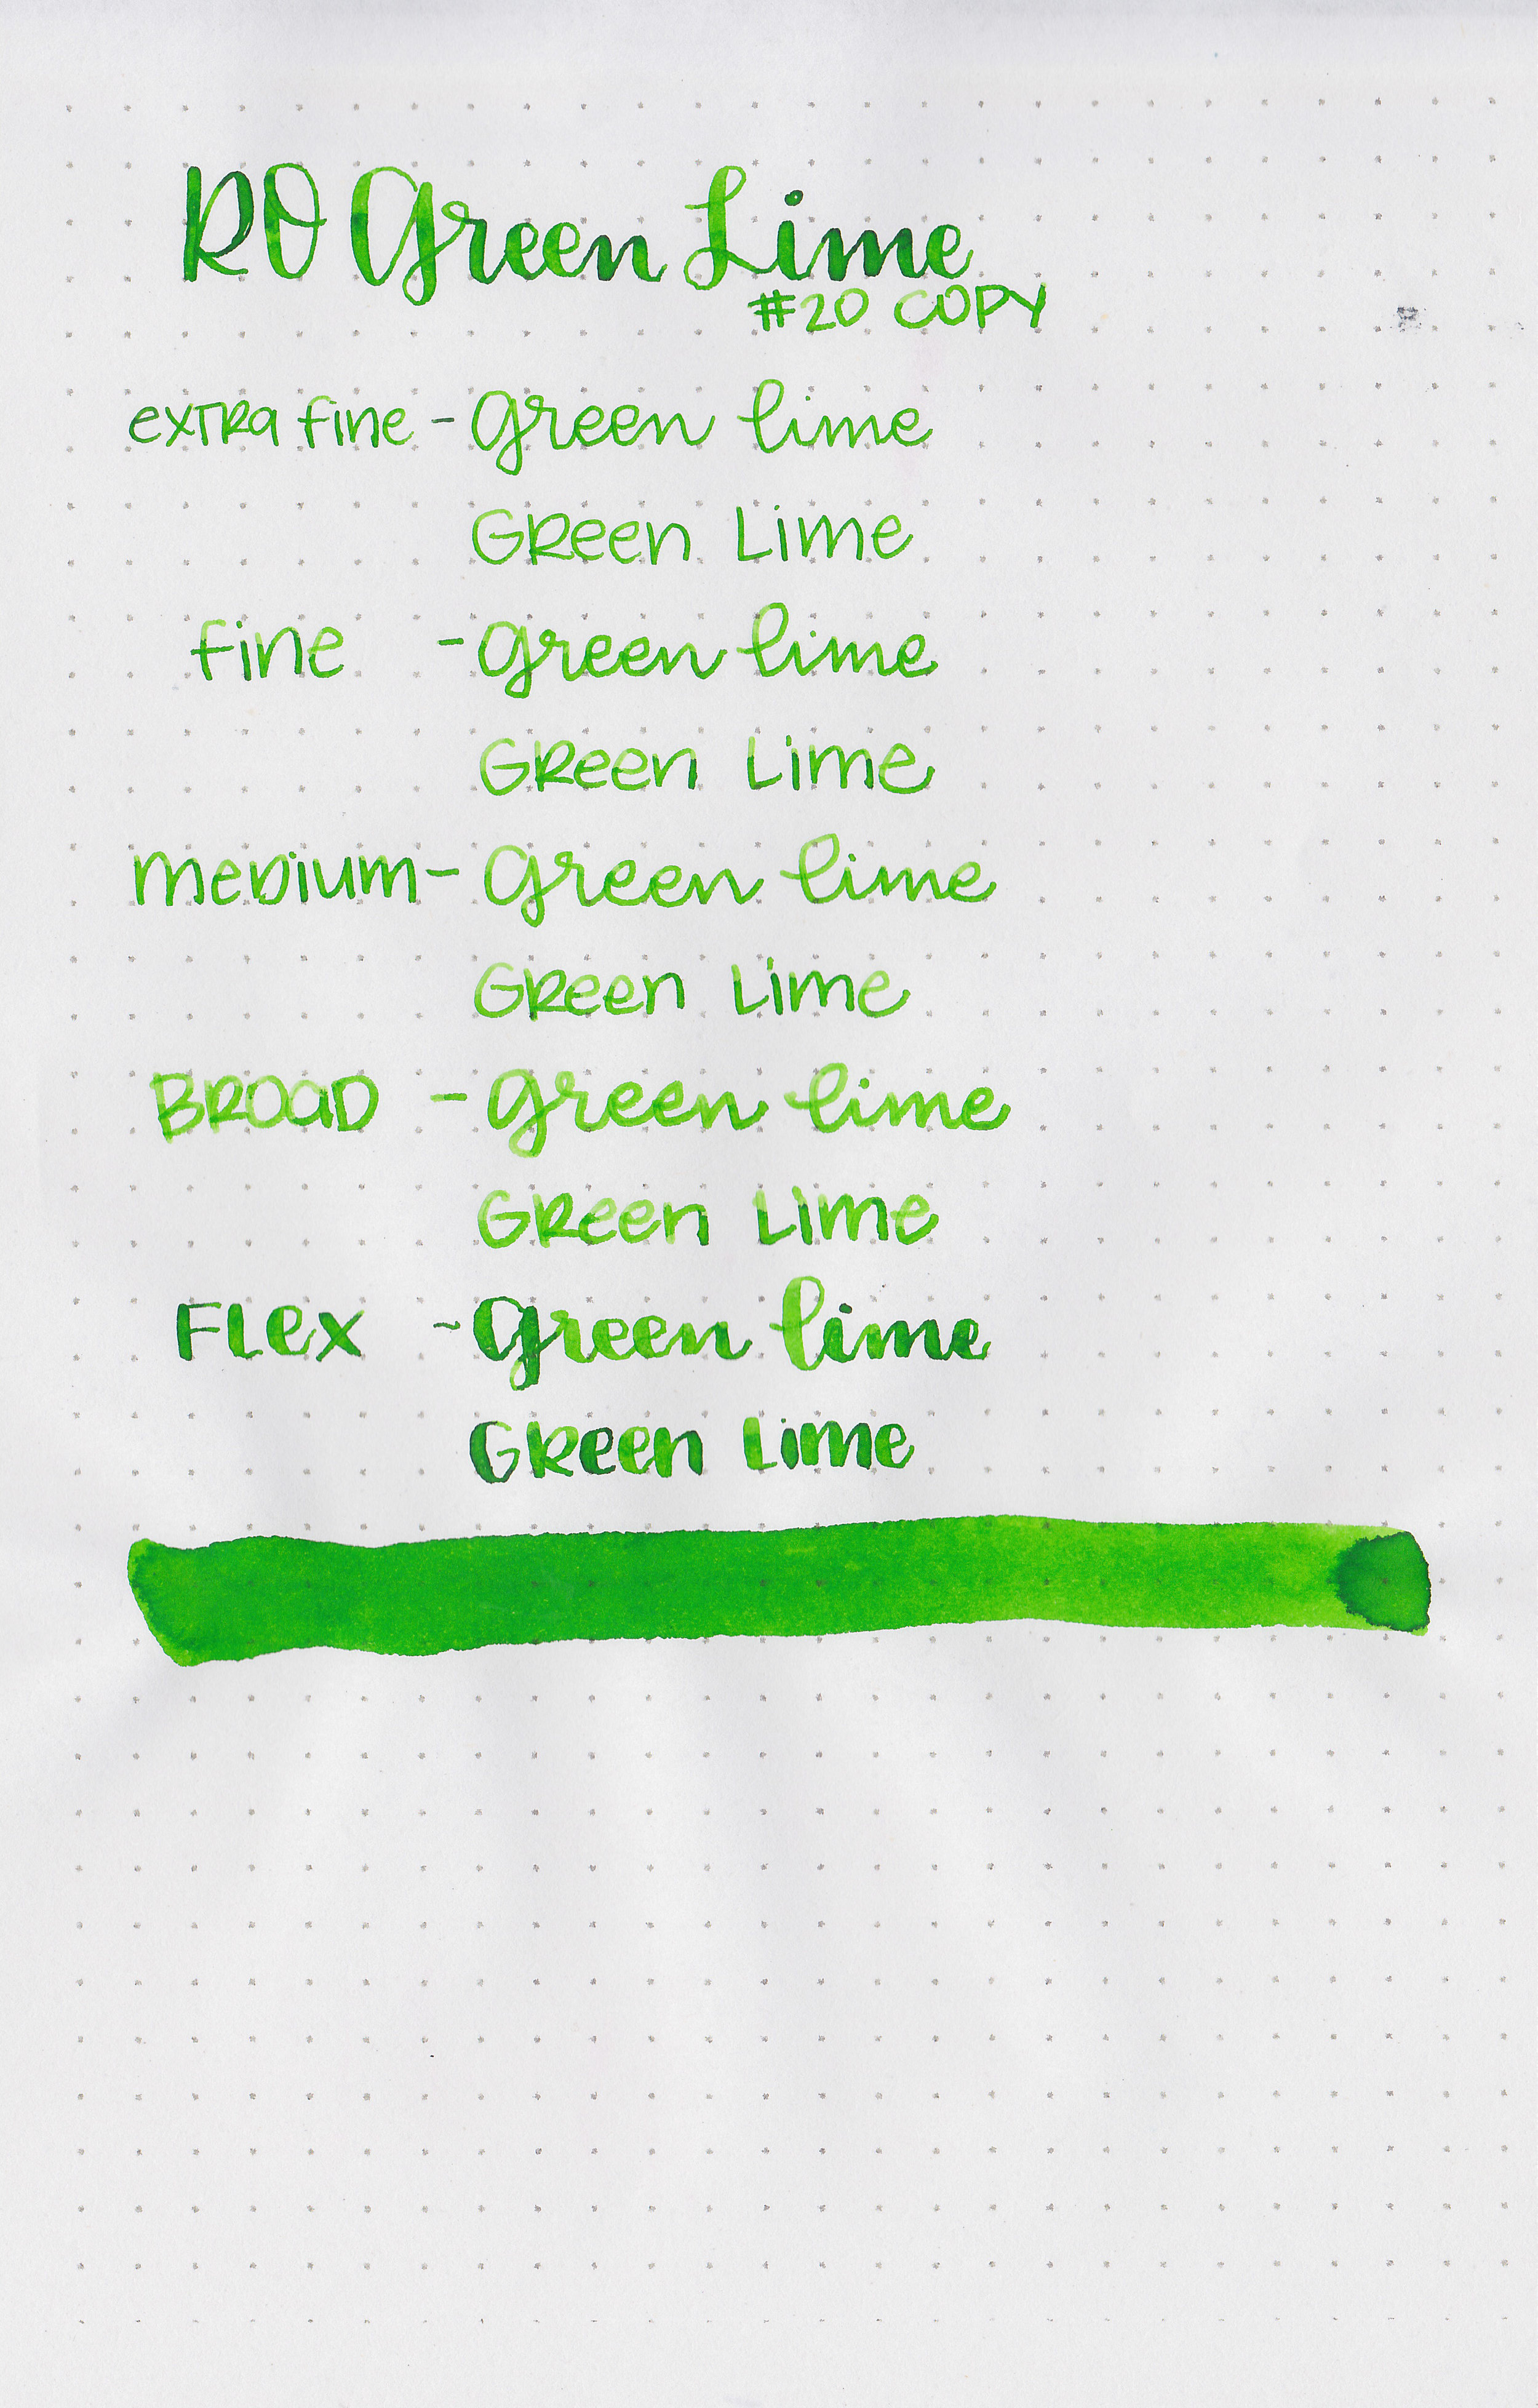 RO Green Lime
#20 COPY
extra fine - green lime
Green Lime
fine - green lime
Green Lime
medium - green lime
Green Lime
BROAD - green lime
Green Lime
Flex - green lime
Green Lime